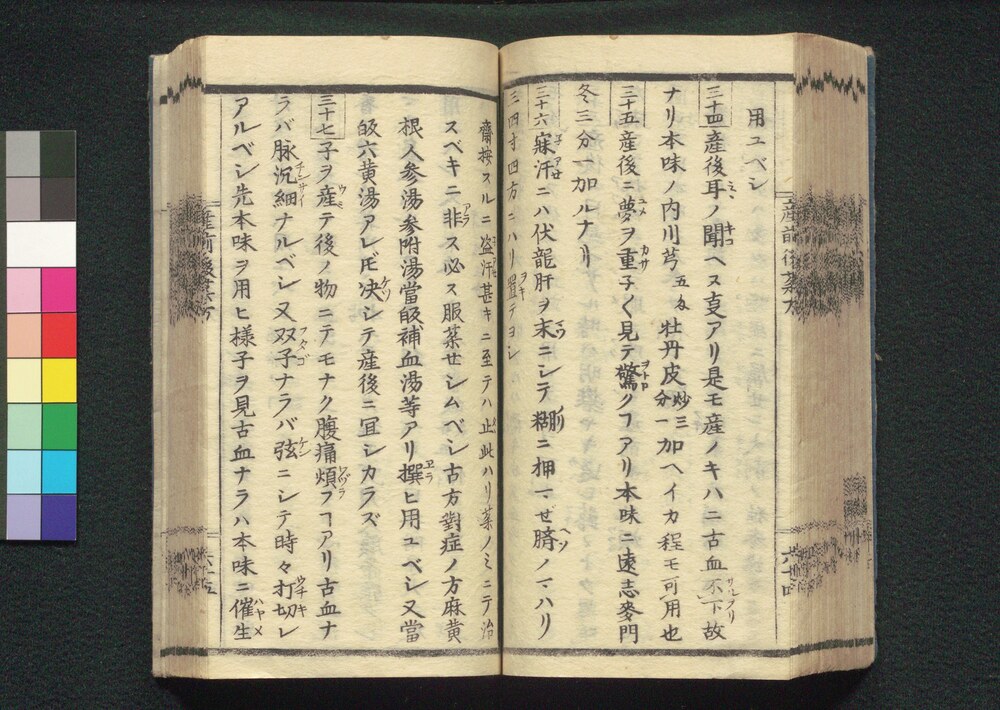 用ユベシ
三十四産後耳ノ聞ヘス亥アリ是モ産ノキハニ古血不下故
ナリ本味ノ内川芎五匁牡丹皮炒三分一加ヘイカ程モ可用也
三十五産後ニ夢ヲ重子〱見テ驚クヿアリ本味ニ遠志麥門
冬三分一加ルナリ
三十六寐汗ニハ伏龍肝ヲ末ニシテ糊ニ押マゼ臍ノマハリ
三四寸四方ニハリ置テヨシ
齋按スルニ盗汗甚キニ至テハ止此ハリ薬ノミニテ治
スベキニ非ス必ス服薬せシムベシ古方對症ノ方麻黄
根人参湯参附湯當皈補血湯等アリ撰ヒ用ユベシ又當
皈六黄湯アレ𪜈决シテ産後ニ宜シカラズ
三十七子ヲ産テ後ノ物ニテモナク腹痛煩フヿアリ古血ナ
ラバ脉沉細ナルベシ又双子ナラバ弦ニシテ時々打切レ
アルベシ先本味ヲ用ヒ様子ヲ見古血ナラハ本味ニ催生
産前後薬方
六十四
産前後薬方
六十五